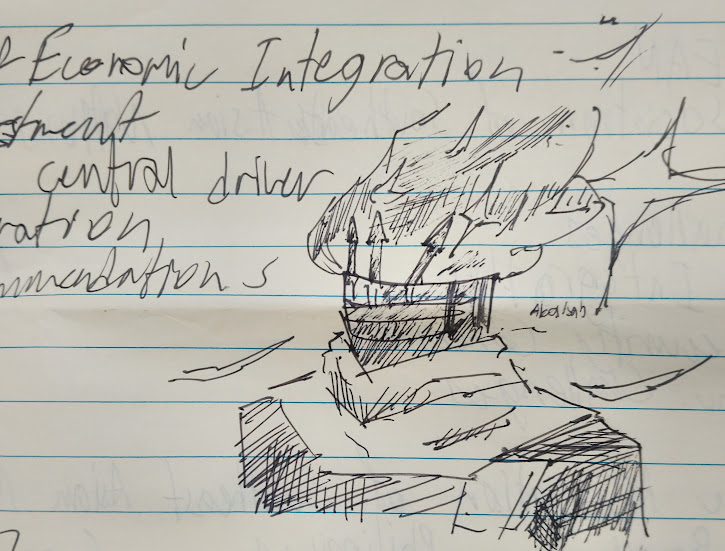 Economic Integration -
stment
central driver
ration
mmendations